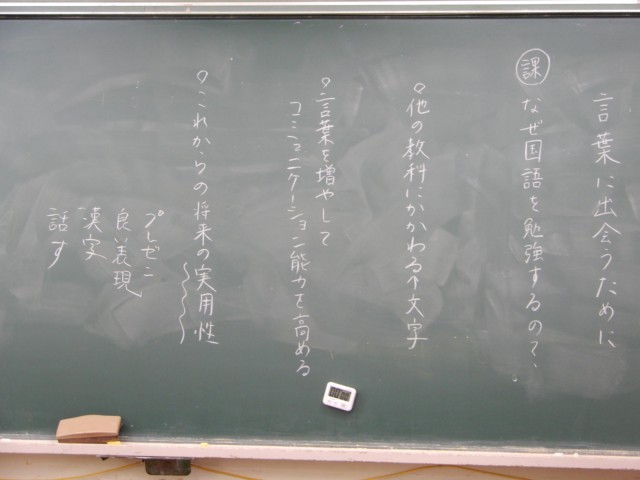 言葉に出会うために
課 なぜ国語を勉強するの？
○他の教科にかかわる↑文字
○言葉を増やして
コミュニケーション能力を高める
○これからの将来の実用性
プレゼン
表現
漢字
話す